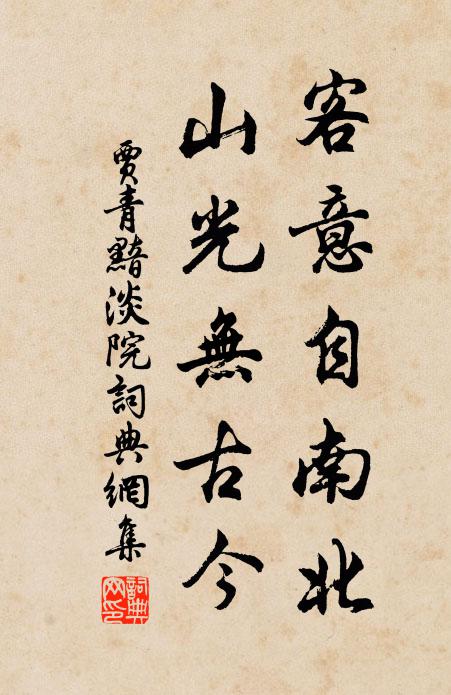 客意自南北
山光無古今
賈青黯淡院詞典網集
詞典網印